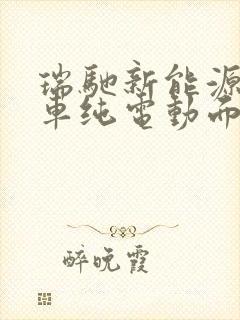 瑞馳新能源
車純電動而
醉晚霞